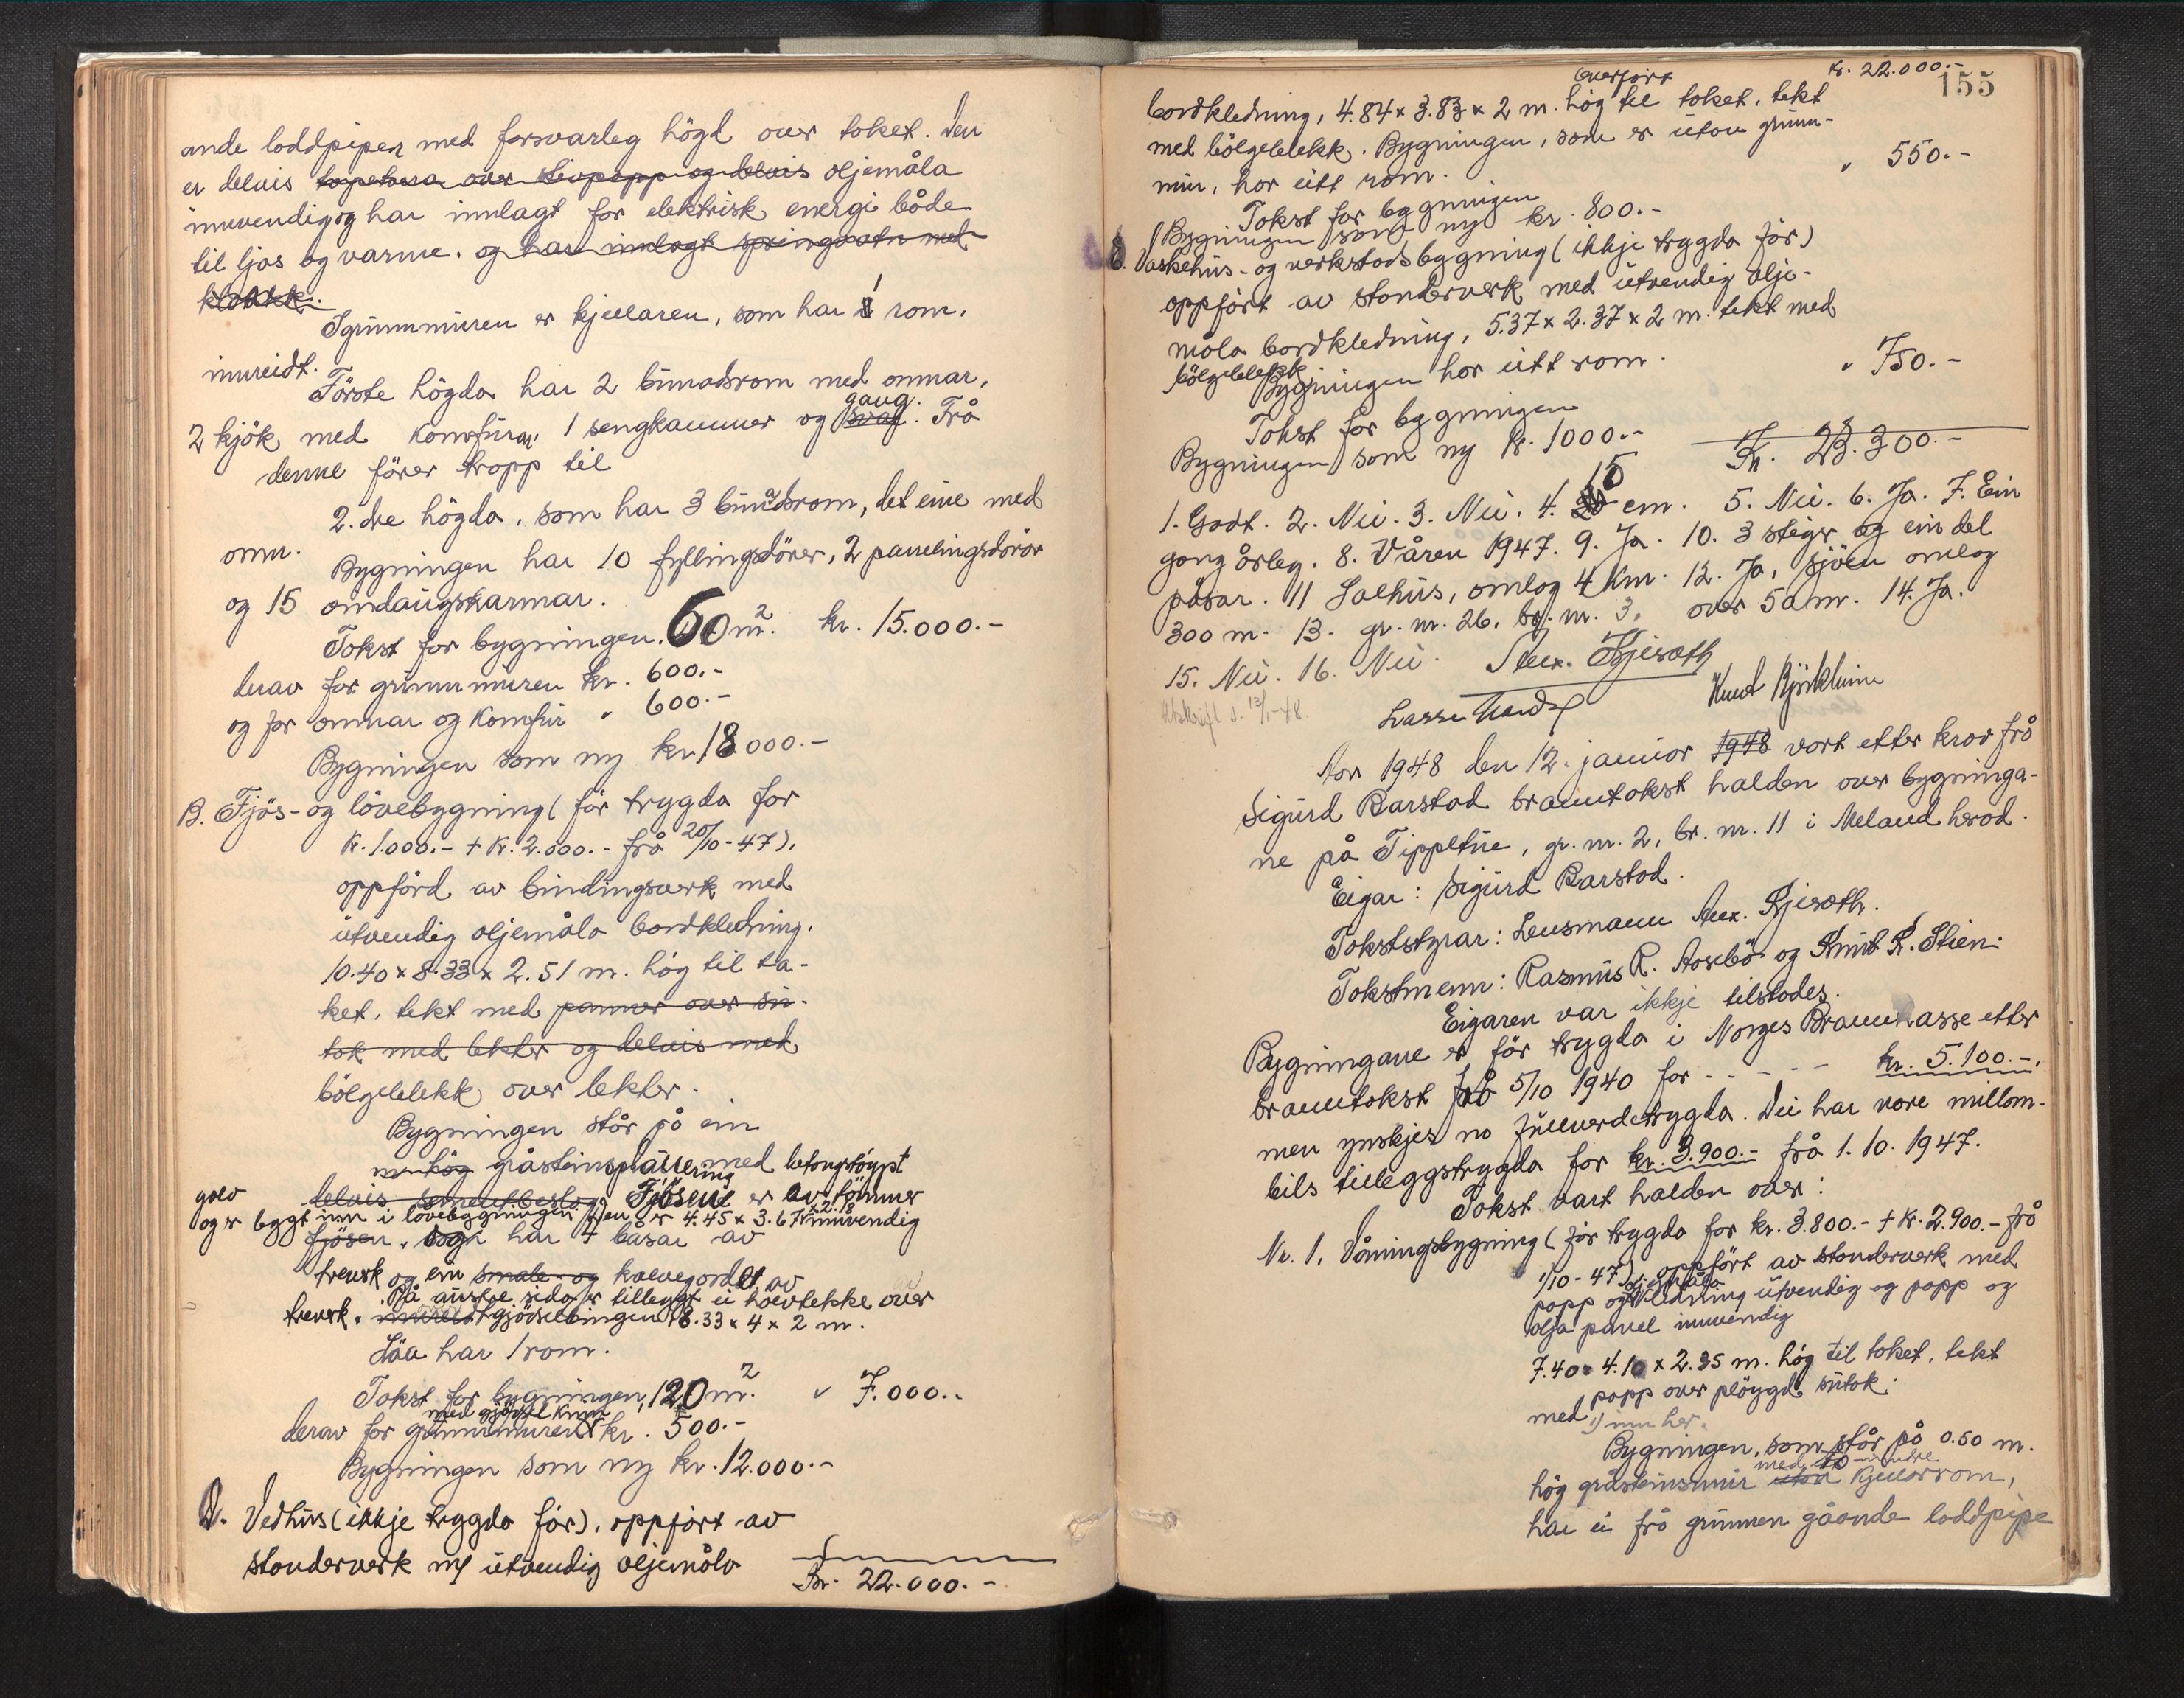 ande loddpiper med forsvarleg högd over taket. Den
er delvis tapetsera over stivpapp og delvis oljemåla
innvendig og har innlagt for elektrisk energi både
til ljos og varme. og har innlagt springvatn med
kloakk.
I grunnmuren er kjellaren, som har 1 rom.
innreidt.
Förste högda har 2 bunadsrom med omnar,
2 kjök med komfurar, 1 sengkammer og sval gang. Frå
denne förer tropp til
2. dre högda, som har 3 bunadsrom, det eine med
omn.
Bygningen har 10 fyllingsdörer, 2 panelingsdörer
og 15 vindaugskarmar.
Takst for bygningen. 60 m². kr. 15.000.-
derav for grunnmuren kr. 600.-
og for omnar og komfur " 600.-
Bygningen som ny kr. 18000.-
B. Fjös- og lövebygning (för trygda for
kr. 1.000.- + kr. 2.000.- frå 20/10-47).
oppförd av bindingsverk med
utvendig oljemåla bordkledning.
10.40 x 8.33 x 2.51 m. hög til ta-
ket, tekt med panner over su-
tak med lekter og delvis med
bölgeblekk over lekter.
Bygningen står på ein
m hög gråsteinsplattering med betongstöypt
golv delvis sementbeslag. Fjösen er av tömmer
og er bygt inn i lövebygningen. Den er 4.45 x 3.67 x 2.18 innvendig
fjösen, og har 4 båsar av
treverk og ein smale- og kalvegard av
treverk. På austre sida er tilbygt ei höevtekke over
innreidt gjödselbingen 8.33 x 4 x 2 m.
Löa har 1 rom.
Takst for bygningen, 120 m². " 7.000.-
med gjödselkum
derav for grunnmuren kr. 500.-
Bygningen som ny kr. 12.000.-
D. Vedhus (ikkje trygda för), oppfört av
stenderverk m/ utvendig oljemåla
Kr. 22.000.-
155
Overfört kr. 22.000.-
bordkledning, 4.84 x 3.83 x 2 m. hög til taket, tekt
med bölgeblekk. Bygningen, som er utan grunn-
mur, har eitt rom.
Takst for bygningen " 550.-
Bygningen som ny kr. 800.-
E. Vaskehus- og verkstadsbygning (ikkje trygda för)
oppfört av stenderverk med utvendig olje-
måla bordkledning, 5.37 x 2.37 x 2 m. tekt med
bölgeblekk.
Bygningen har eitt rom.
Takst for bygningen " 750.-
Bygningen som ny kr. 1000.-
Kr. 23.300.-
1. Godt. 2. Nei. 3. Nei. 4. 15 cm. 5. Nei. 6. Ja. 7. Ein
gong årleg. 8. Våren 1947. 9. Ja. 10. 3 stigar og ein del
pösar. 11 Salhus, omlag 4 km. 12. Ja, sjöen omlag
300 m. 13. gr. nr. 26. br. nr. 3. over 50 m. 14. Ja.
15. Nei. 16. Nei. Alex. Kjeseth
Knut Björklund
Utskrift s. 13/1-48.
Aar 1948 den 12. januar 1948 vart etter krav frå
Sigurd Barstad branntakst halden over bygninga-
ne på Tippetue, gr. nr. 2, br. nr. 11 i Meland herad.
Eigar: Sigurd Barstad.
Takststyrar: Lensmann Alex. Kjeseth.
Takstmenn: Rasmus R. Rosebö og Knut K. Stien.
Eigaren var ikkje tilstades.
Bygningane er för trygda i Norges Brannkasse etter
branntakst frå 5/10 1940 for - - - - - kr. 5.100.-,
men ynskjes no fullverdetrygda. Dei har vore millom-
bils tilleggstrygda for kr. 3.900.- frå 1.10.1947.
Takst vart halden over:
Nr. 1. Våningsbygning (för trygda for kr. 3.800.- + kr. 2.900.- frå
1/10-47), oppfört av stenderverk med
oljemåla
papp og kledning utvendig og papp og
olja panel innvendig
7.40 x 4.10 x 2.35 m. hög til taket, tekt
med papp over plöygd sutak.
1) inn her.
Bygningen, som står på 0.50 m.
hög gråsteinsmur utan med to mindre kjellarrom,
har ei frå grunnen gåande loddpipe